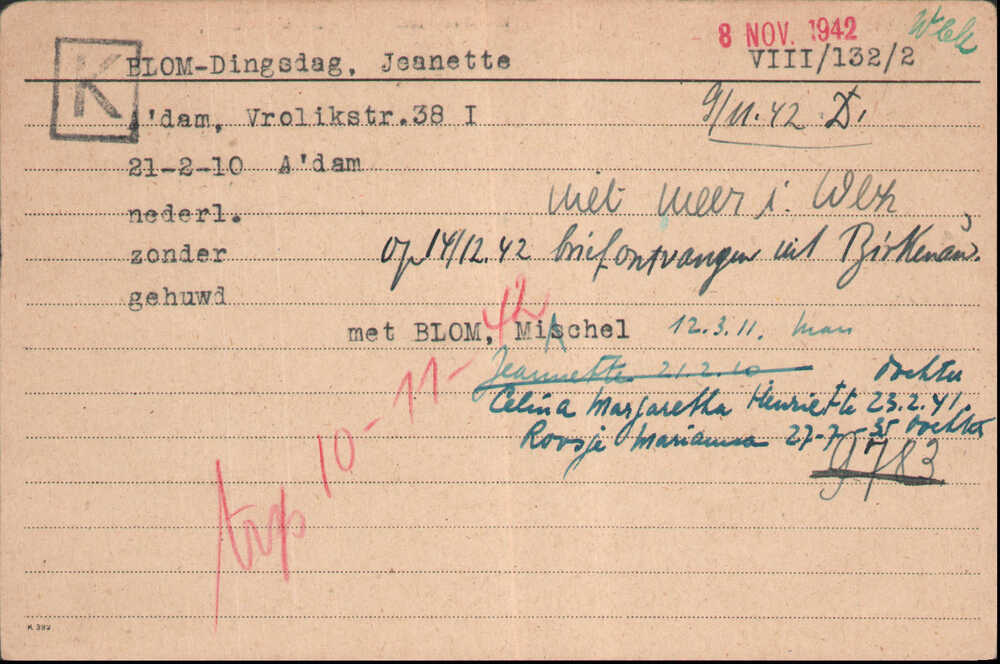 8 NOV. 1942 Wbk
K BLOM-Dingsdag, Jeanette VIII/132/2
A'dam, Vrolikstr.38 I 9/11.42 D.
21-2-10 A'dam
nederl. niet meer i. Wbk
zonder op 14/12.42 brief ontvangen uit Birkenau.
gehuwd
met BLOM, Mischel 12.3.11. man
Jeannette 21.2.10 dochter
Celina Margaretha Henriette 23.2.41.
Roosje Marianna 27-7-35 dochter
9783
trp 10-11-42
K 392